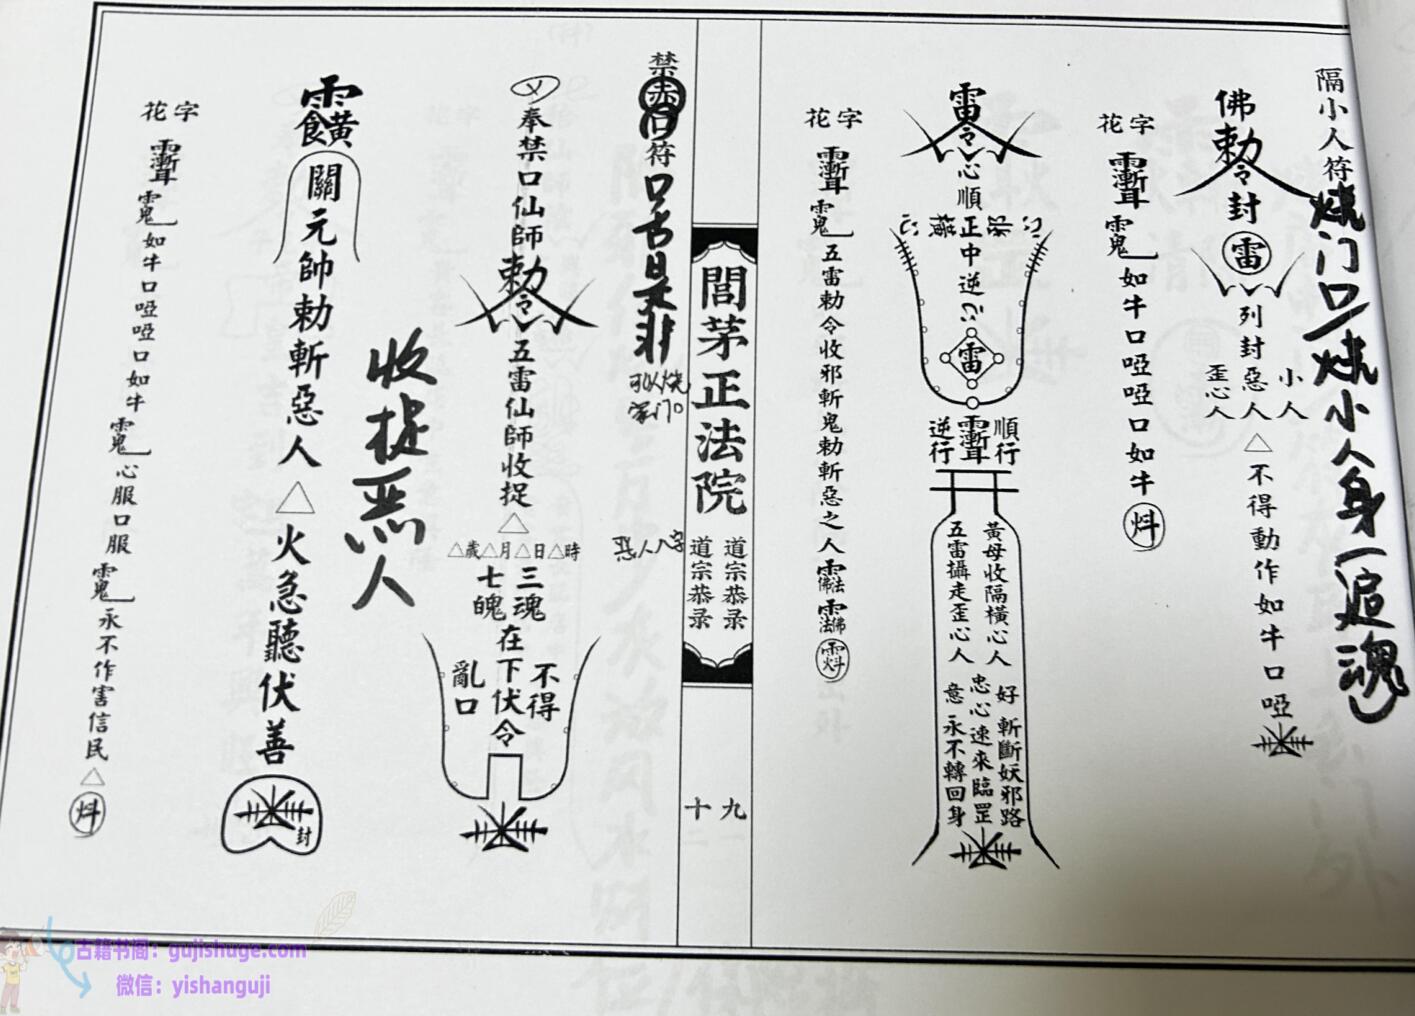 隔小人符
烧门口/烧小人身/追魂
佛勅令封雷
列封惡人△不得動作如牛口啞
小人
歪心人
花字
如牛口啞啞口如牛
雷令
心順
正中逆
雷
順行
逆行
黃母收隔橫心人
五雷攝走歪心人
好
忠心速來臨罡
意
斬斷妖邪路
永不轉回身
花字
五雷勅令收邪斬鬼勅斬惡之人
閭茅正法院
道宗恭录
道宗恭录
九
十
禁赤口符
口舌是非
可以烧
家门口
恶人八字
奉禁口仙師勅令
五雷仙師收捉△
△歲△月△日△時
三魂
七魄
在下伏令
不得
亂口
收捉恶人
關元帥勅斬惡人△火急聽伏善
封
花字
如牛口啞啞口如牛
心服口服
永不作害信民△
古籍书阁：gujishuge.com
微信：yishanguji